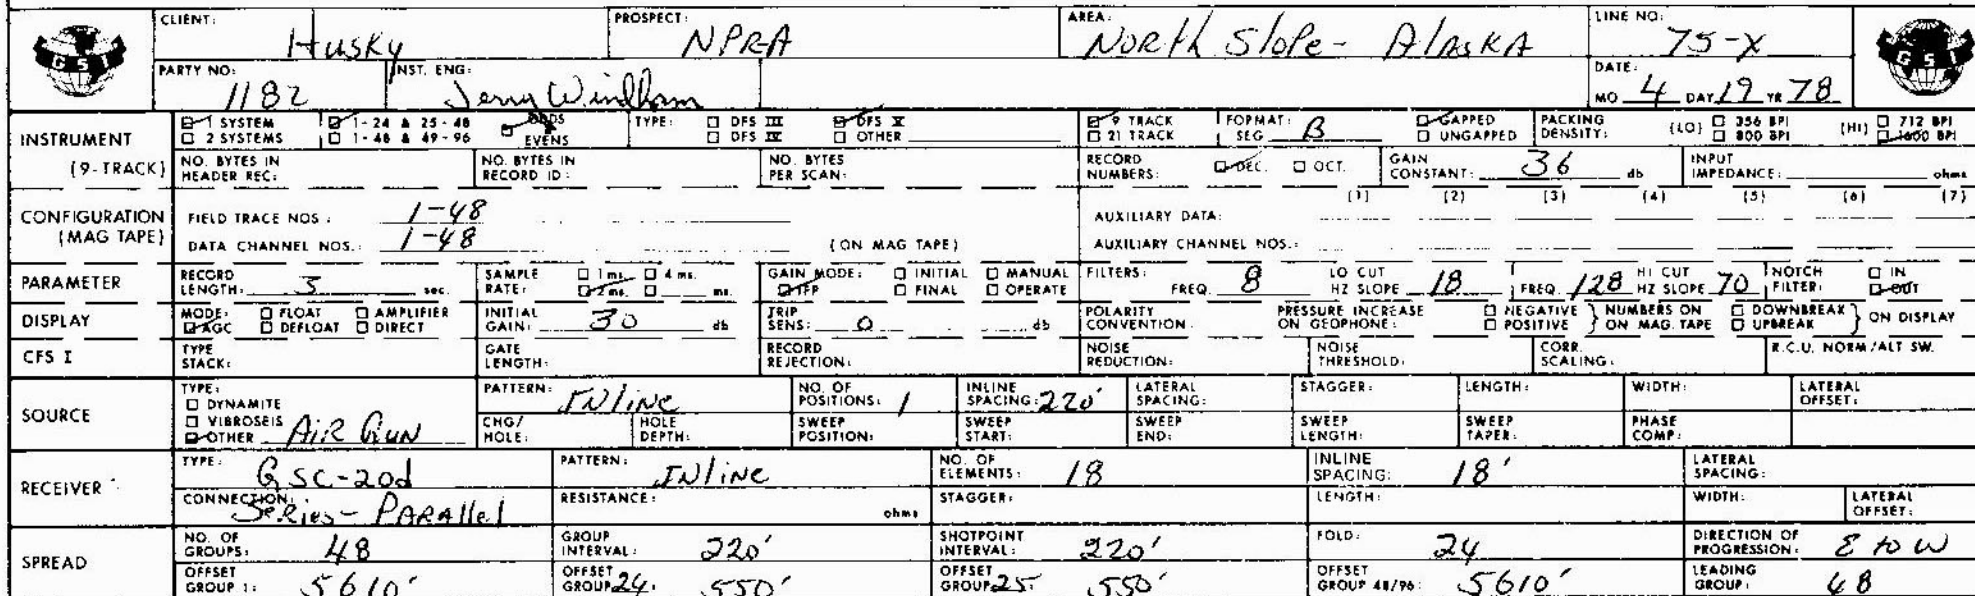 CLIENT: Husky PROSPECT: NPRA AREA: North Slope - Alaska LINE NO: 75-X
GSI GSI
PARTY NO: 1182 INST. ENG: Jerry Windham DATE: MO 4 DAY 19 YR 78
INSTRUMENT 1 SYSTEM 1-24 & 25-48 ODDS TYPE: DFS III DFS V 9 TRACK FORMAT: GAPPED PACKING (LO) 356 BPI (HI) 712 BPI
2 SYSTEMS 1-48 & 49-96 EVENS DFS IV OTHER 21 TRACK SEG B UNGAPPED DENSITY: 800 BPI 1600 BPI
(9-TRACK) NO. BYTES IN HEADER REC: NO. BYTES IN RECORD ID: NO. BYTES PER SCAN: RECORD NUMBERS: DEC. OCT. GAIN CONSTANT: 36 db INPUT IMPEDANCE: ohms
(1) (2) (3) (4) (5) (6) (7)
CONFIGURATION FIELD TRACE NOS: 1-48 AUXILIARY DATA:
(MAG TAPE) DATA CHANNEL NOS.: 1-48 (ON MAG TAPE) AUXILIARY CHANNEL NOS.:
PARAMETER RECORD LENGTH: sec. SAMPLE RATE: 1 ms. 4 ms. 2 ms. ms. GAIN MODE: INITIAL MANUAL IFP FINAL OPERATE FILTERS: FREQ. 8 LO CUT HZ SLOPE 18 FREQ. 128 HI CUT HZ SLOPE 70 NOTCH FILTER: IN OUT
DISPLAY MODE: FLOAT AMPLIFIER AGC DEFLOAT DIRECT INITIAL GAIN: 30 db TRIP SENS: 0 db POLARITY CONVENTION: PRESSURE INCREASE ON GEOPHONE: NEGATIVE POSITIVE } NUMBERS ON MAG. TAPE DOWNBREAK UPBREAK } ON DISPLAY
CFS I TYPE STACK: GATE LENGTH: RECORD REJECTION: NOISE REDUCTION: NOISE THRESHOLD: CORR. SCALING: R.C.U. NORM/ALT SW.
SOURCE TYPE: DYNAMITE PATTERN: INline NO. OF POSITIONS: 1 INLINE SPACING: 220' LATERAL SPACING: STAGGER: LENGTH: WIDTH: LATERAL OFFSET:
VIBROSEIS OTHER AiR GUN CHG/HOLE: HOLE DEPTH: SWEEP POSITION: SWEEP START: SWEEP END: SWEEP LENGTH: SWEEP TAPER: PHASE COMP:
RECEIVER TYPE: GSC-20d PATTERN: INline NO. OF ELEMENTS: 18 INLINE SPACING: 18' LATERAL SPACING:
CONNECTION: Series - Parallel RESISTANCE: ohms STAGGER: LENGTH: WIDTH: LATERAL OFFSET:
SPREAD NO. OF GROUPS: 48 GROUP INTERVAL: 220' SHOTPOINT INTERVAL: 220' FOLD: 24 DIRECTION OF PROGRESSION: E to W
OFFSET GROUP 1: 5610' OFFSET GROUP 24: 550' OFFSET GROUP 25: 550' OFFSET GROUP 48/96: 5610' LEADING GROUP: 48